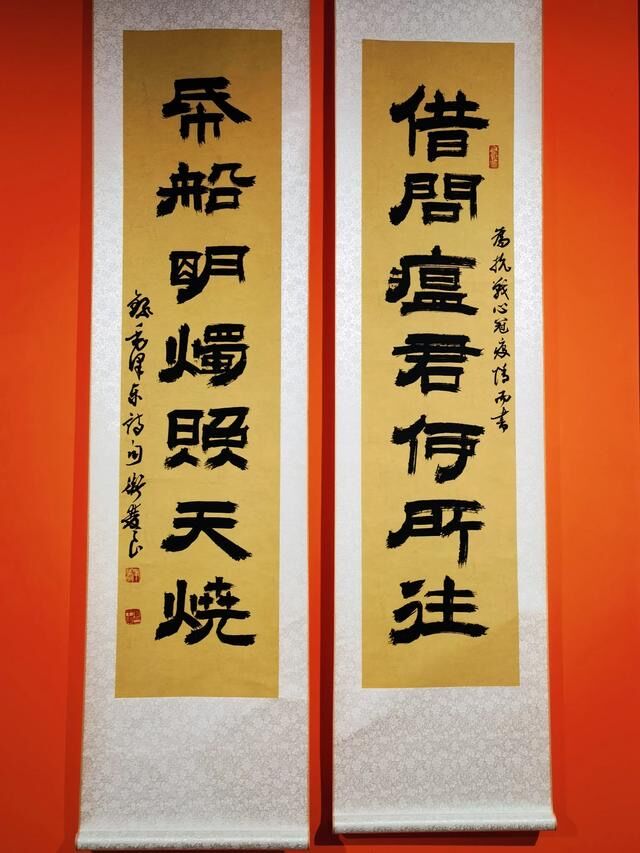 為抗戰心冠疫情而書
借問瘟君何所往
帋船明燭照天燒
錄毛澤东詩句